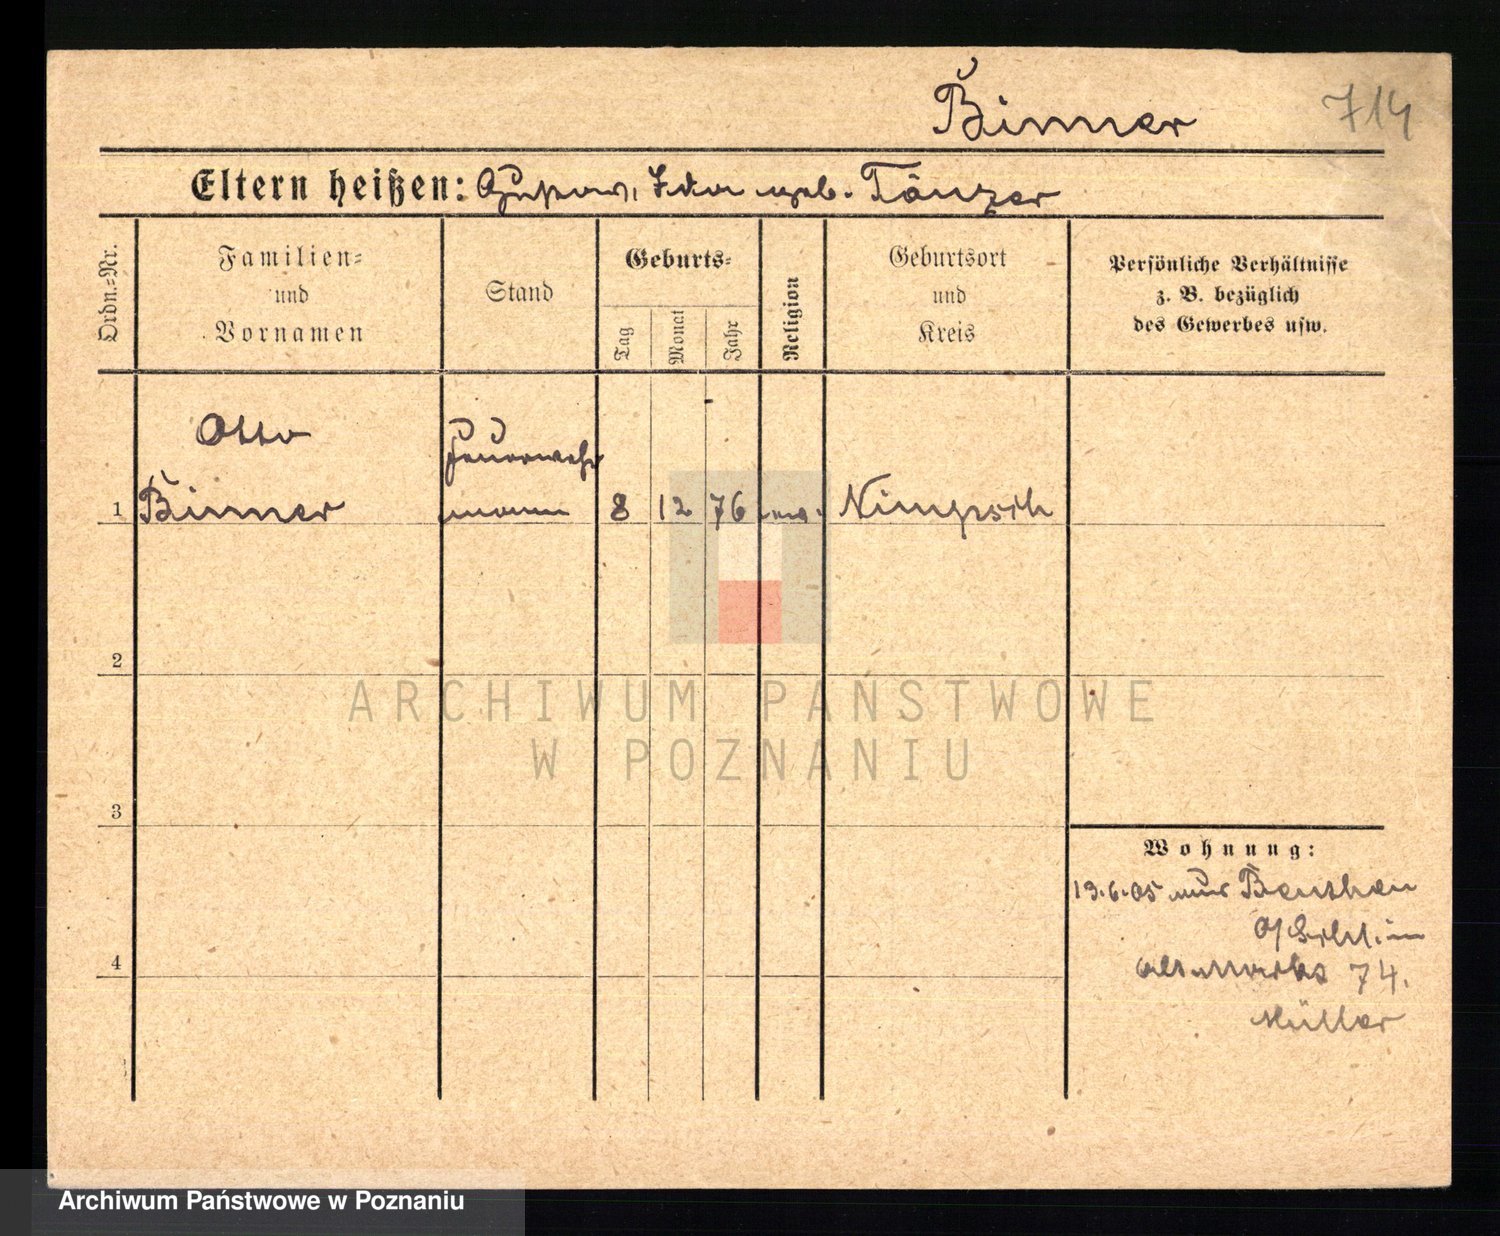 Binner
714
Eltern heißen: Gustav, Ida geb. Tänzer
Ordn.-Nr.
Familien-
und
Vornamen
Stand
Geburts-
Tag
Monat
Jahr
Religion
Geburtsort
und
Kreis
Persönliche Verhältnisse
z. B. bezüglich
des Gewerbes usw.
Otto
Feuerwehr
1 Binner mann 8 12 76 ev. Nimptsch
2
ARCHIWUM PAŃSTWOWE
W POZNANIU
3
Wohnung:
19.6.05 aus Beuthen
4
74.
Müller
Archiwum Państwowe w Poznaniu